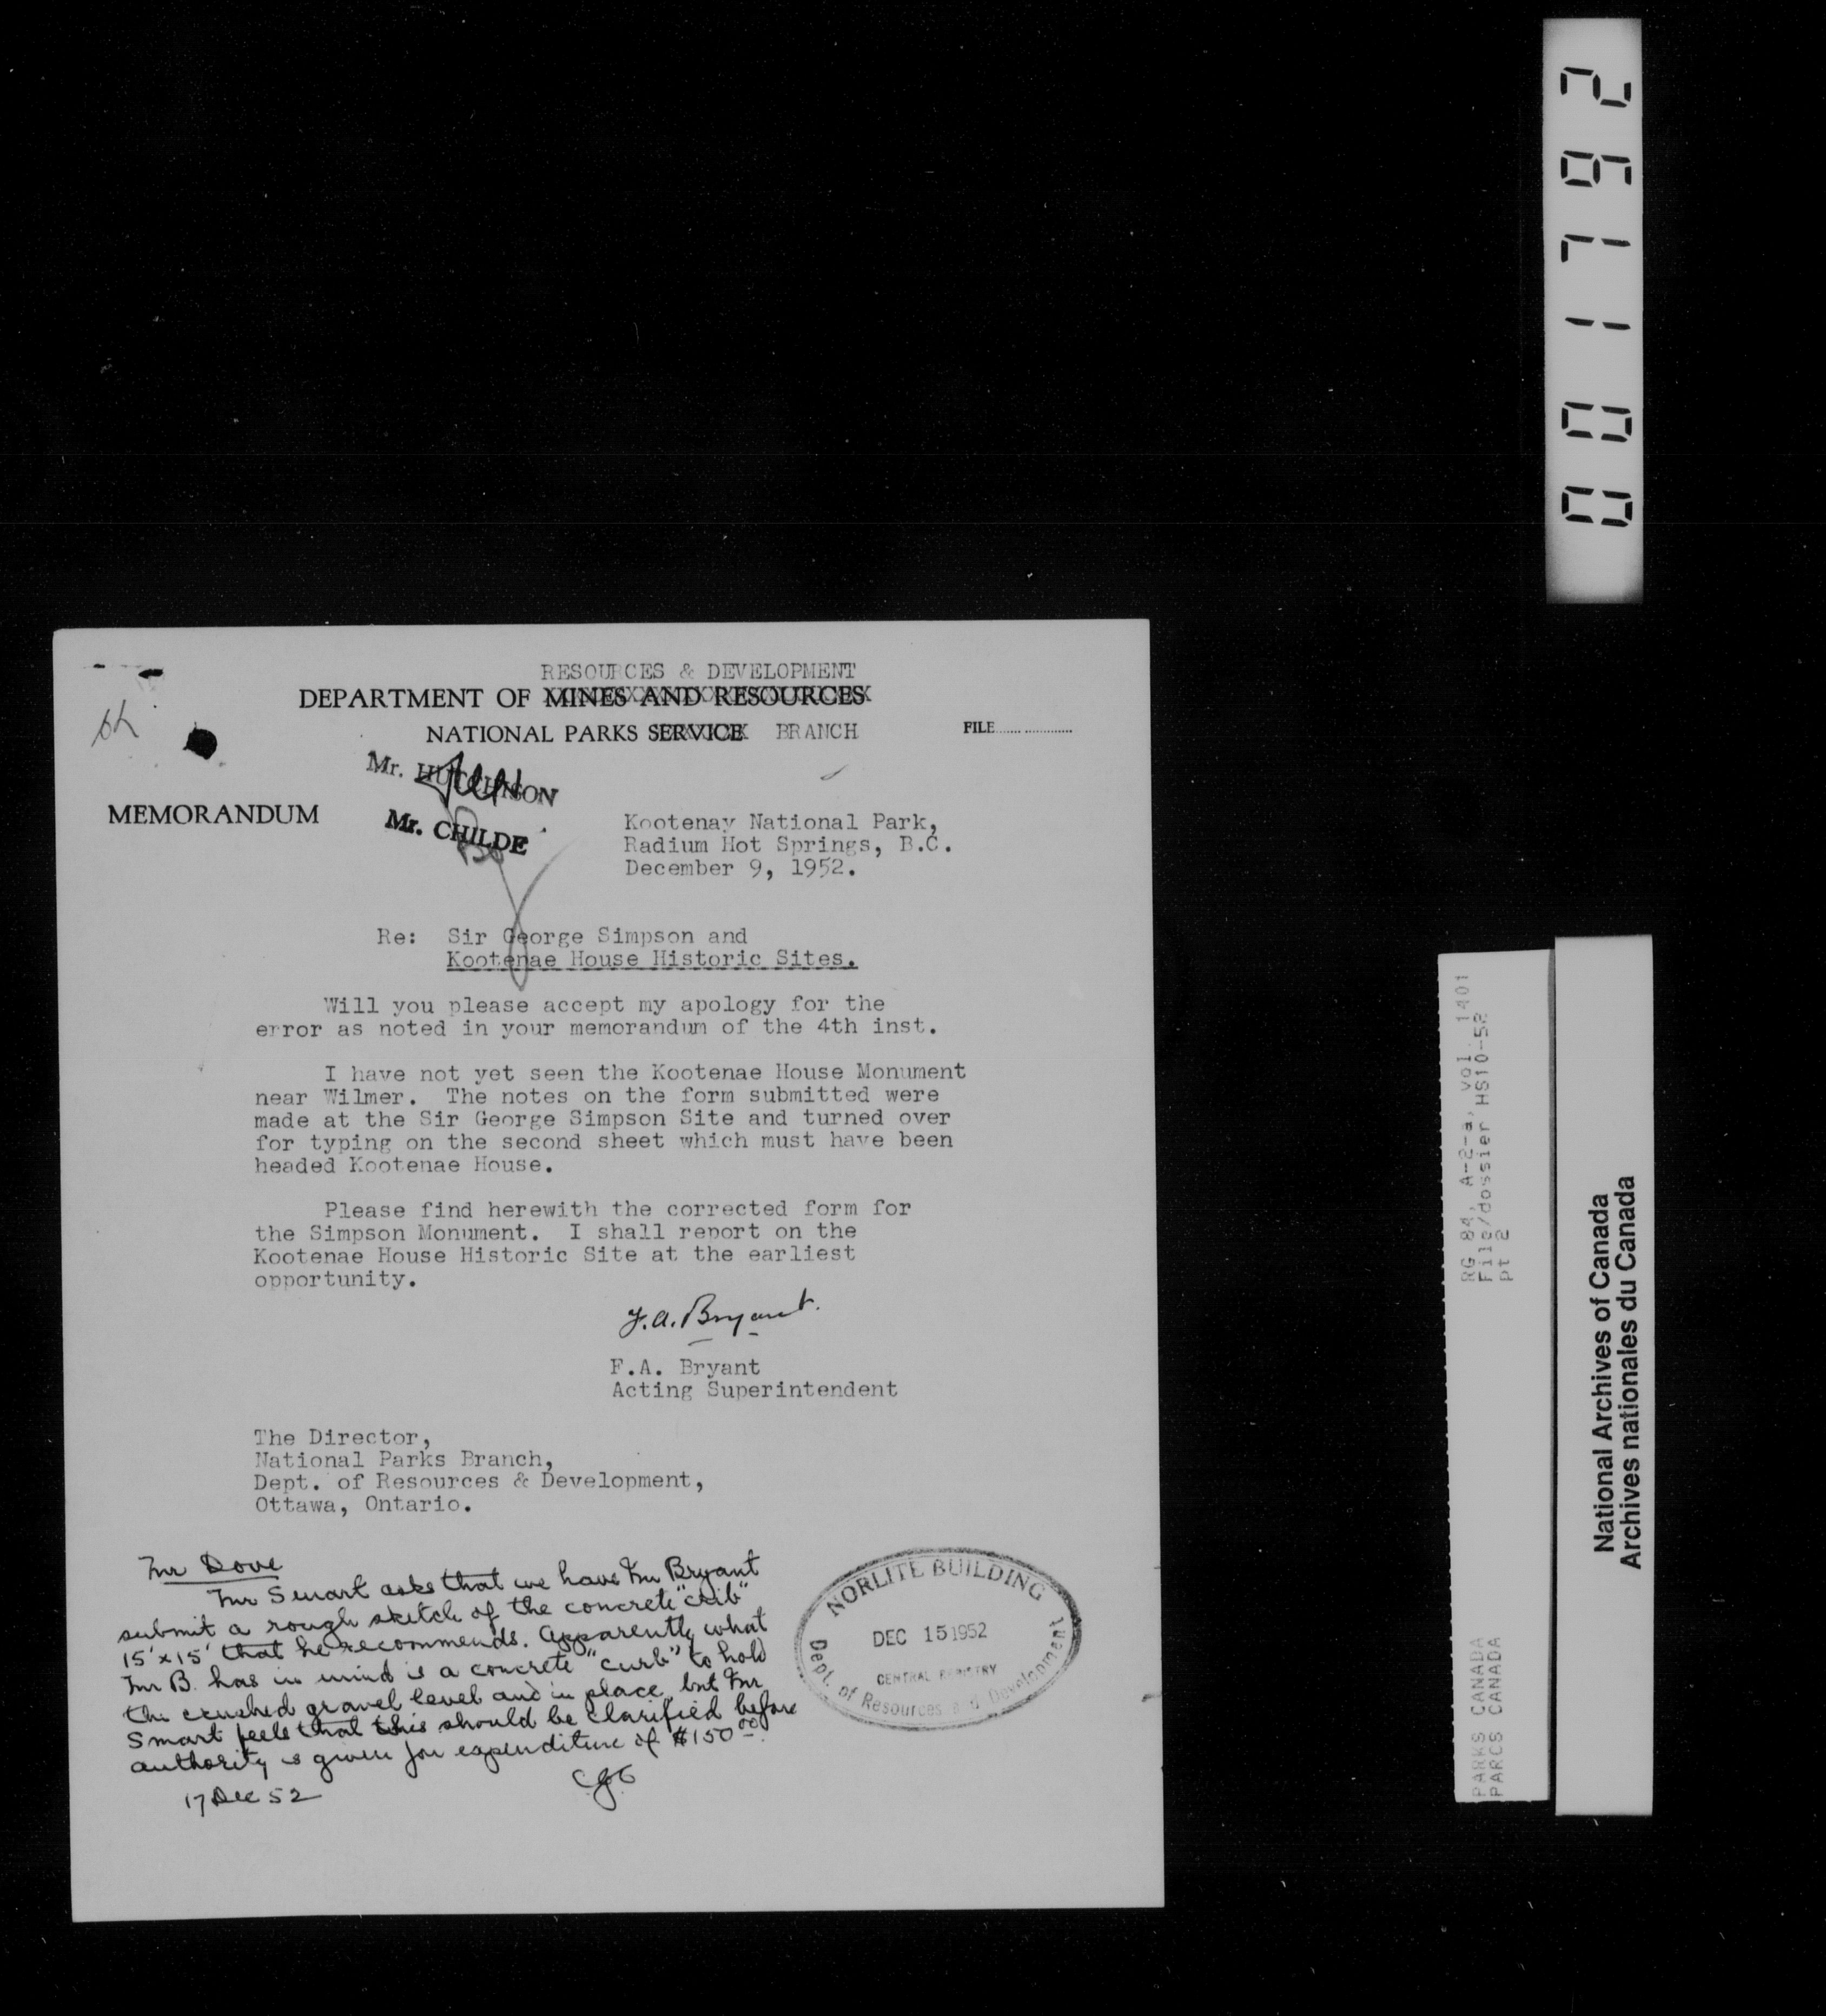 001792
RESOURCES & DEVELOPMENT
DEPARTMENT OF MINES AND RESOURCES
NATIONAL PARKS SERVICE BRANCH
FILE
Mr. HUTCHISON
Mr. CHILDE
MEMORANDUM
Kootenay National Park,
Radium Hot Springs, B.C.
December 9, 1952.
Re: Sir George Simpson and
Kootenae House Historic Sites.
Will you please accept my apology for the
error as noted in your memorandum of the 4th inst.
I have not yet seen the Kootenae House Monument
near Wilmer. The notes on the form submitted were
made at the Sir George Simpson Site and turned over
for typing on the second sheet which must have been
headed Kootenae House.
Please find herewith the corrected form for
the Simpson Monument. I shall report on the
Kootenae House Historic Site at the earliest
opportunity.
F.A. Bryant.
F.A. Bryant
Acting Superintendent
The Director,
National Parks Branch,
Dept. of Resources & Development,
Ottawa, Ontario.
Mr Dove
Mr Smart asks that we have Mr Bryant
submit a rough sketch of the concrete "crib"
15' x 15' that he recommends. Apparently what
Mr B. has in mind is a concrete "curb" to hold
the crushed gravel level and in place, but Mr
Smart feels that this should be clarified before
authority is given for expenditure of $150.00.
17 Dec 52
NORLITE BUILDING
DEC 15 1952
CENTRAL REGISTRY
Dept. of Resources and Development
RG 84, A-2-a, vol. 1401
File/dossier HS10-52
pt 2
PARKS CANADA
PARCS CANADA
National Archives of Canada
Archives nationales du Canada